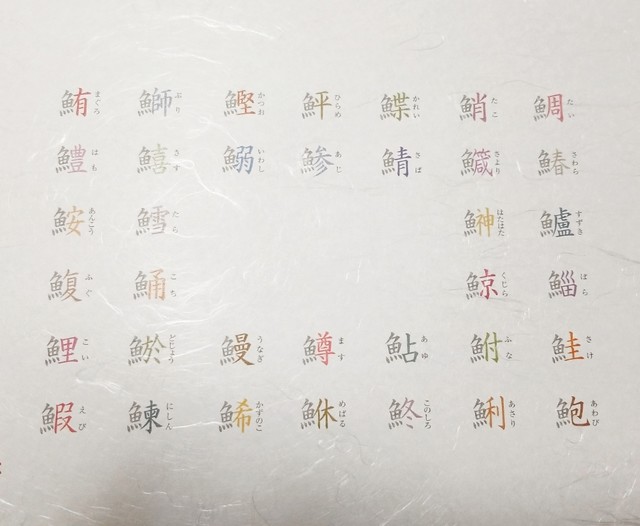 鮪まぐろ 鰤ぶり 鰹かつお 鮃ひらめ 鰈かれい 鮹たこ 鯛たい
鱧はも 鱚きす 鰯いわし 鯵あじ 鯖さば 鱵さより 鰆さわら
鮟あんこう 鱈たら 鰰はたはた 鱸すずき
鰒ふぐ 鯒こち 鯨くじら 鯔ぼら
鯉こい 鯲どじょう 鰻うなぎ 鱒ます 鮎あゆ 鮒ふな 鮭さけ
鰕えび 鰊にしん 鯑かずのこ 鮴めばる 鮗このしろ 鯏あさり 鮑あわび